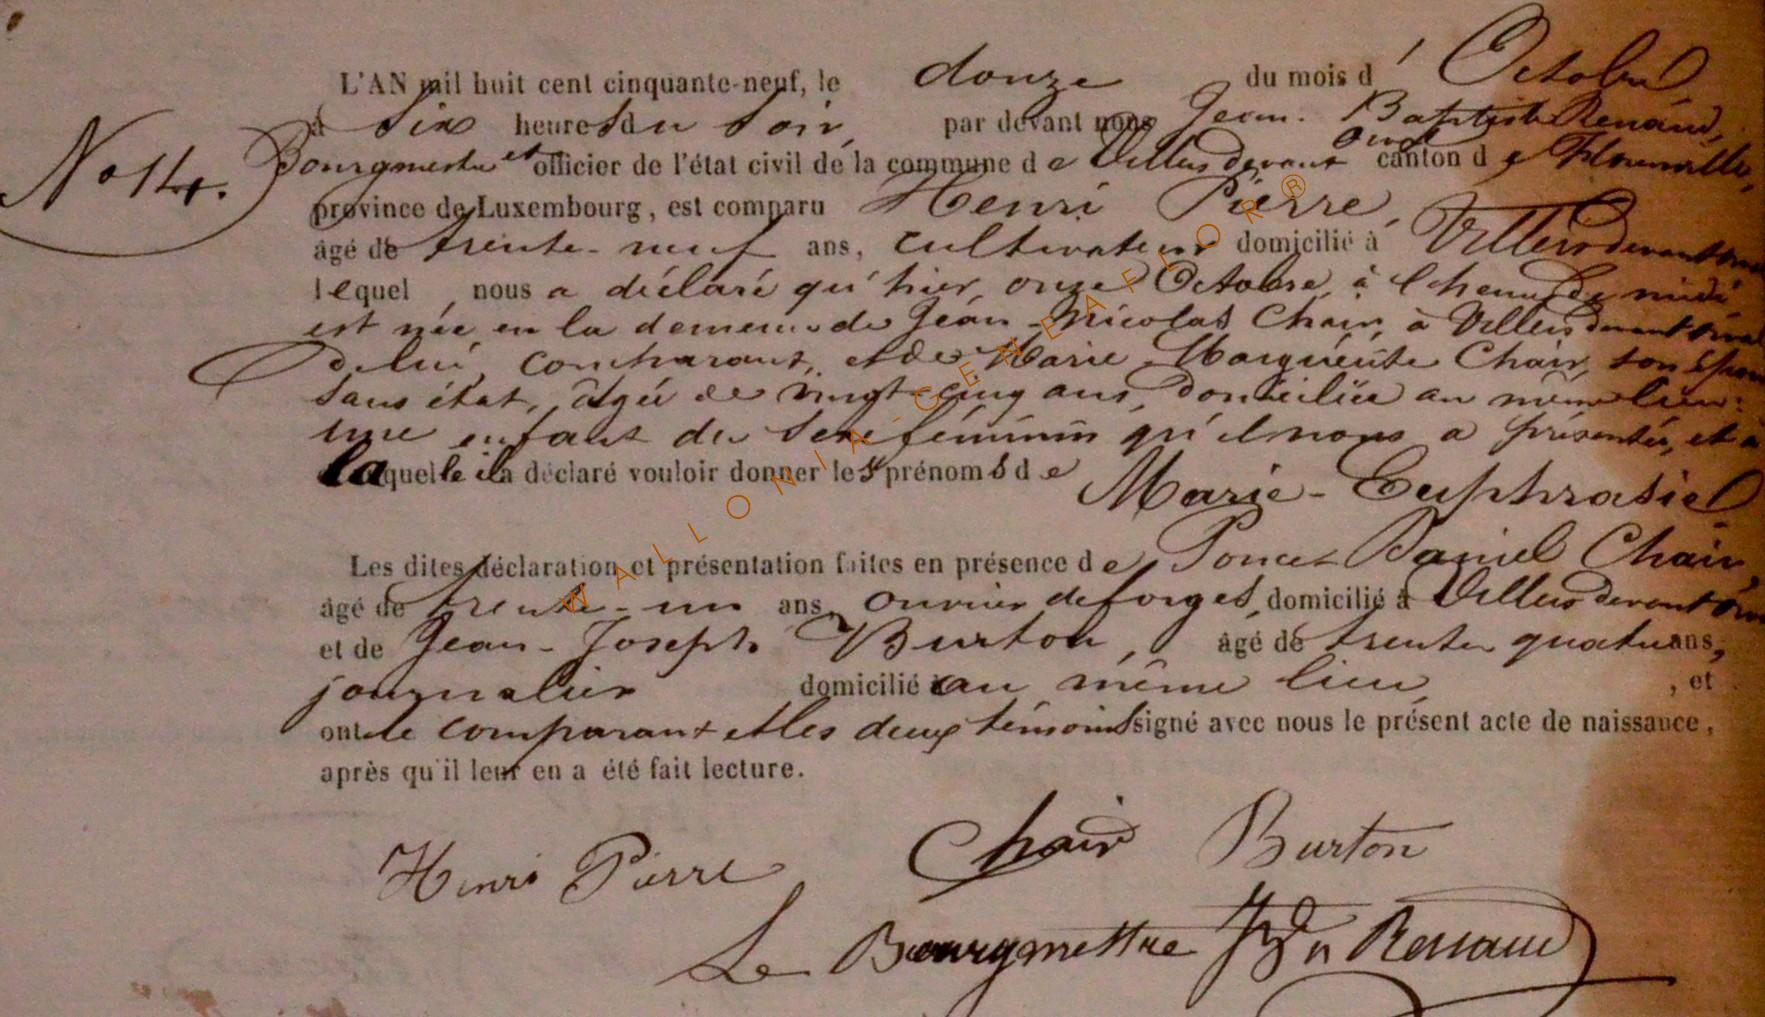 L'AN mil huit cent cinquante-neuf, le douze du mois d'Octobre,
à Six heures du Soir, par devant nous Jean-Baptiste Renaud,
No 14. Bourgmestre et officier de l'état civil de la commune de Villers devant Orval canton de Florenville,
province de Luxembourg, est comparu Henri Pierre,
âgé de trente-neuf ans, cultivateur domicilié à Villers devant Orval
lequel nous a déclaré qu'hier, onze Octobre, à l'heure de midi
est née, en la demeure de Jean-Nicolas Chair, à Villers devant Orval
de lui, comparant, et de Marie-Marguerite Chair, son
Sans état, âgée de vingt-cinq ans, domiciliée au même lieu:
une enfant du Sexe féminin qu'il nous a présentée, et à
laquelle il a déclaré vouloir donner les prénoms de Marie-Euphrasie
Les dites déclaration et présentation faites en présence de Poncet Daniel Chair,
âgé de trente-un ans, ouvrier de forges, domicilié à Villers devant Orval
et de Jean-Joseph Burton, âgé de trente quatre ans,
journalier domicilié au même lieu, et
ont le comparant et les deux témoins signé avec nous le présent acte de naissance,
après qu'il leur en a été fait lecture.
Henri Pierre Chair Burton
Le Bourgmestre Renaud
WALLONIA-GENEAFLOR®